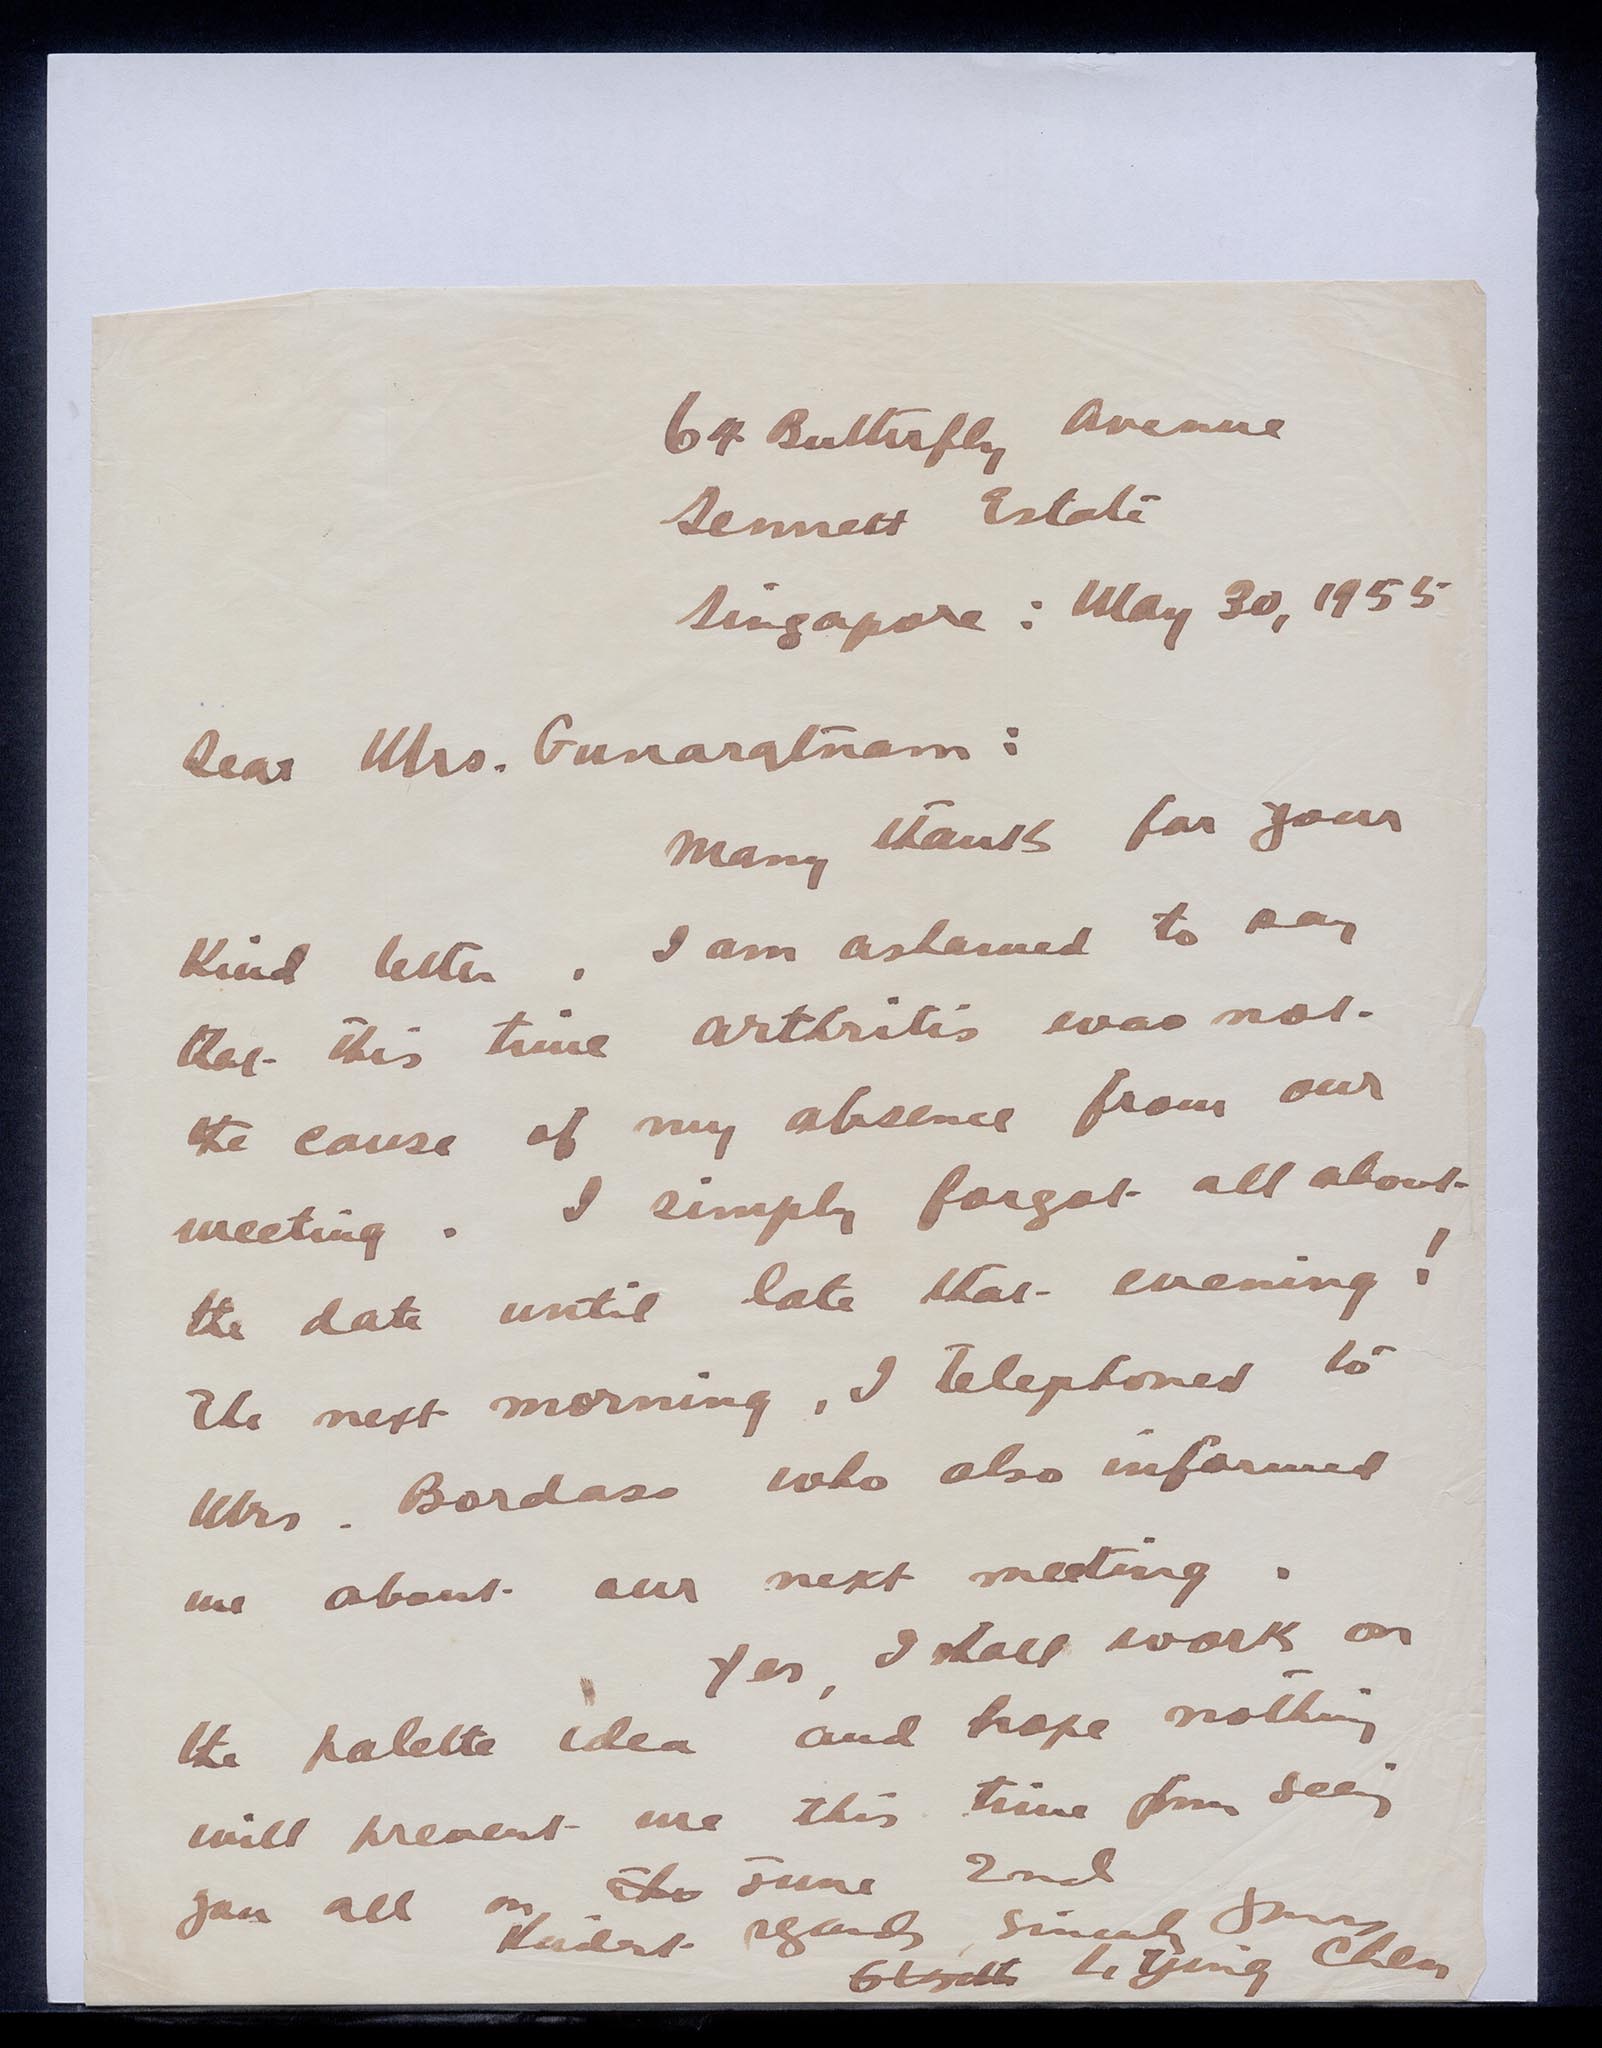 64 Butterfly Avenue
Sennett Estate
Singapore : May 30, 1955
Dear Mrs. Gunaratnam :
Many thanks for your
kind letter . I am ashamed to say
that this time arthritis was not
the cause of my absence from our
meeting . I simply forgot all about
the date until late that evening !
The next morning , I telephoned to
Mrs . Bordass who also informed
me about our next meeting .
Yes, I shall work on
the palette idea and hope nothing
will prevent me this time from seeing
you all on the June 2nd
Kindest regards, sincerely yours
Li Ying Chen